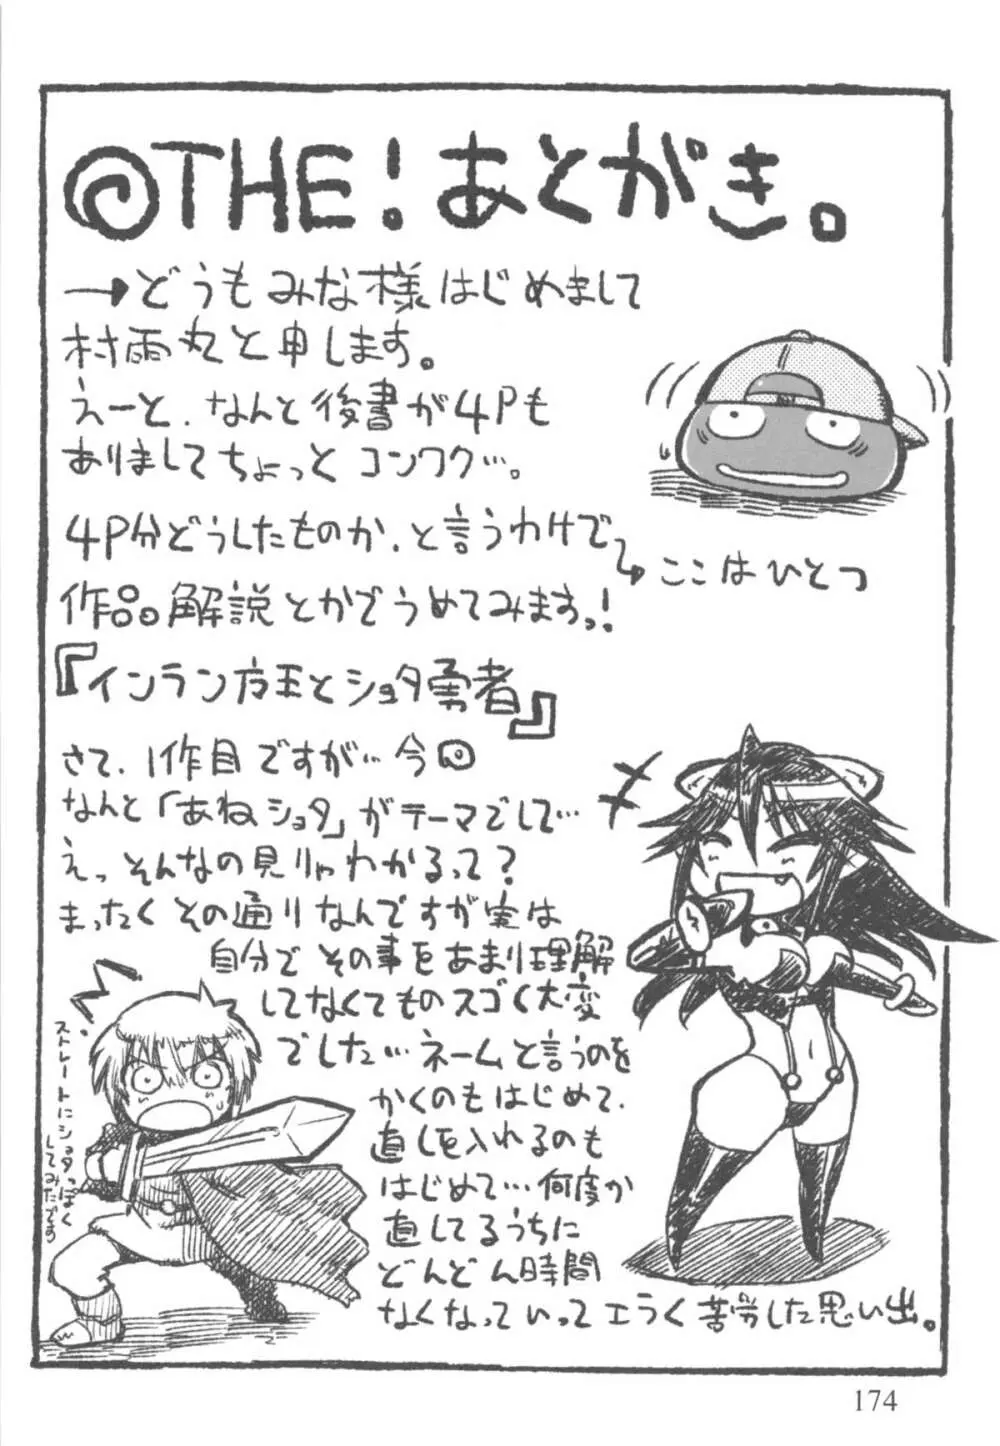 @THE！あとがき。
→どうもみな様はじめまして
村雨丸と申します。
えーと、なんと後書が4Pも
ありましてちょっとコンワク…。
4P分どうしたものか、と言うわけで
→ここはひとつ
作品解説とかでうめてみますっ！
『インラン方王とショタ勇者』
さて、1作目ですが…今回
なんと「あねショタ」がテーマでして…
えっそんなの見りゃわかるって？
まったくその通りなんですが実は
自分でその事をあまり理解
してなくてものスゴく大変
でした…ネームと言うのを
かくのもはじめて、
直しを入れるのも
はじめて…何度か
直してるうちに
どんどん時間
なくなっていってエラく苦労した思い出。
ストレートにショタっぽく
してみたです
174